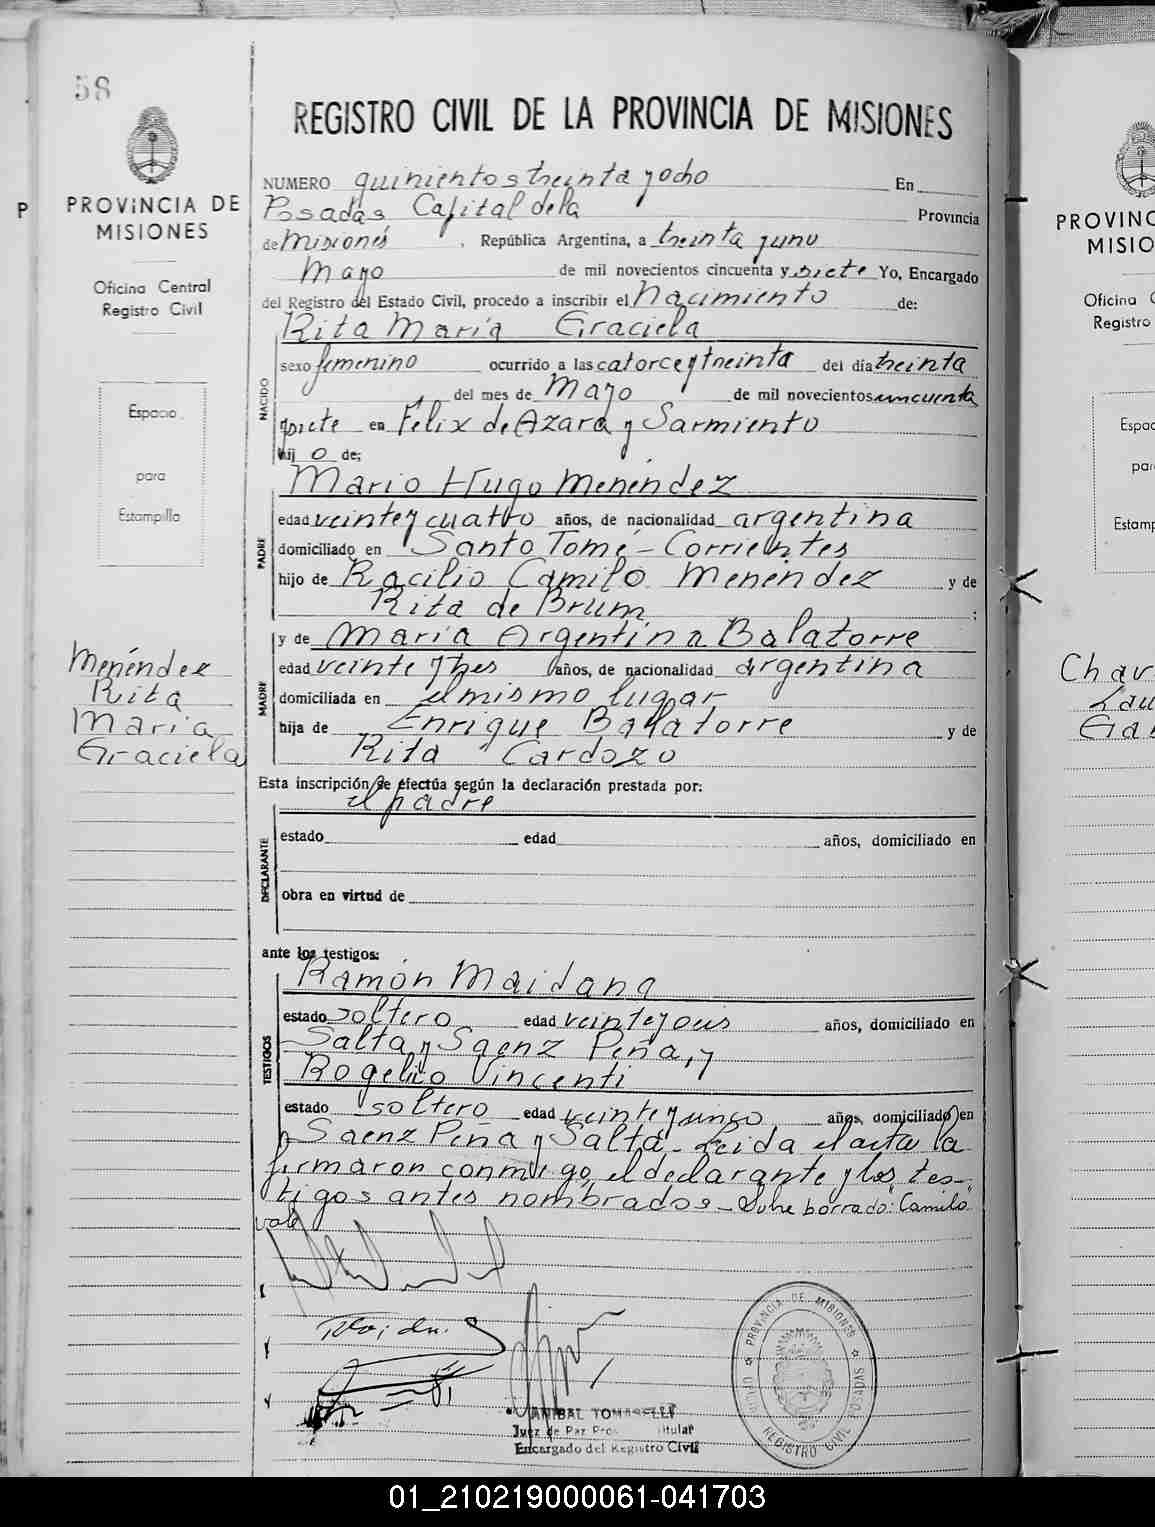 58
REGISTRO CIVIL DE LA PROVINCIA DE MISIONES
PROVINCIA DE
MISIONES
Oficina Central
Registro Civil
Espacio
para
Estampilla
Menéndez
Rita
Maria
Graciela
NUMERO quinientos treinta y ocho En
Posadas Capital de la Provincia
de Misiones, República Argentina, a treinta y uno
Mayo de mil novecientos cincuenta y siete Yo, Encargado
del Registro del Estado Civil, procedo a inscribir el Nacimiento de:
Rita María Graciela
NACIDO
sexo femenino ocurrido a las catorce y treinta del día treinta
del mes de Mayo de mil novecientos cincuenta
y siete en Félix de Azara y Sarmiento
hij o de;
Mario Hugo Menéndez
PADRE
edad veinte y cuatro años, de nacionalidad argentina
domiciliado en Santo Tomé - Corrientes
hijo de Racilio Camilo Menéndez y de
Rita de Brum ;
MADRE
y de María Argentina Balatorre
edad veinte y tres años, de nacionalidad argentina
domiciliada en el mismo lugar
hija de Enrique Balatorre y de
Rita Cardozo
Esta inscripción se efectúa según la declaración prestada por:
el padre
DECLARANTE
estado edad años, domiciliado en
obra en virtud de
ante los testigos:
Ramón Maidana
TESTIGOS
estado soltero edad veinte y seis años, domiciliado en
Salta y Saenz Peña, y
Rogelio Vincenti
estado soltero edad veinte y cinco años, domiciliado en
Saenz Peña y Salta - Leida el acta la
firmaron conmigo, el declarante y los tes-
tigos antes nombrados - Sobre borrado: "Camilo"
vale
ANIBAL TOMASELLI
Juez de Paz Titular
Encargado del Registro Civil
PROVINCIA DE MISIONES
REGISTRO CIVIL
POSADAS
P
PROVINC
MISIO
Oficina C
Registro
Espac
par
Estamp
Chav
Lau
01_210219000061-041703